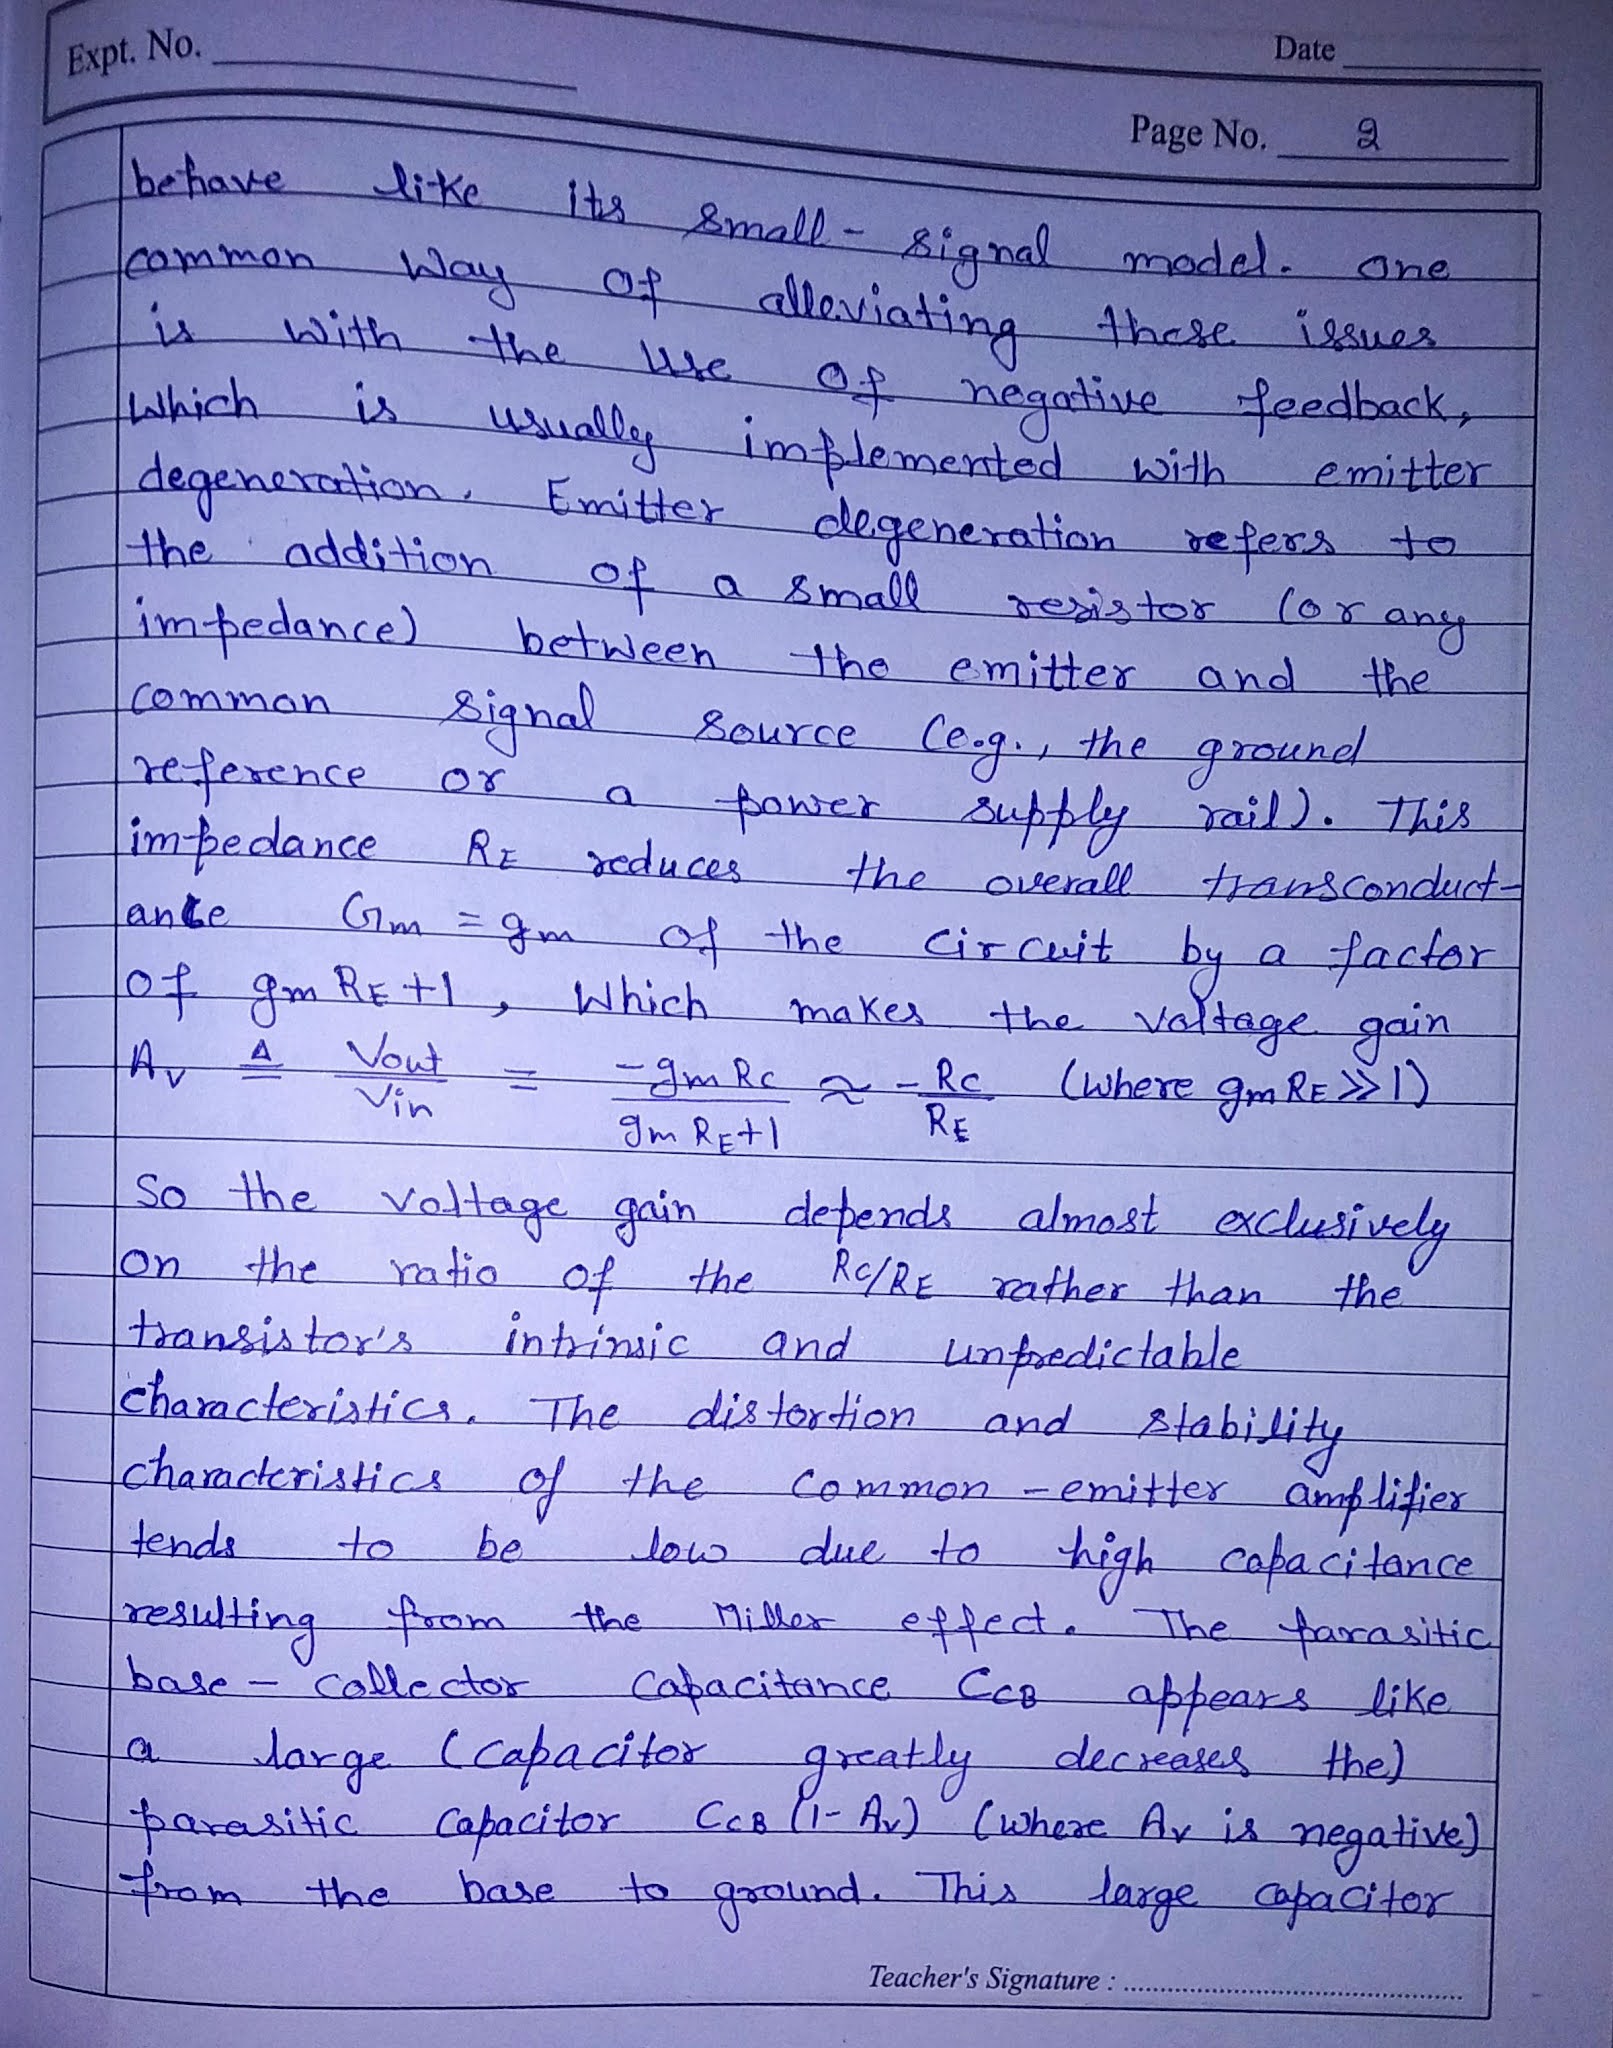 Expt. No.
Date
Page No. 2
behave like its small-signal model. One
common way of alleviating these issues
is with the use of negative feedback,
which is usually implemented with emitter
degeneration. Emitter degeneration refers to
the addition of a small resistor (or any
impedance) between the emitter and the
common signal source (e.g., the ground
reference or a power supply rail). This
impedance RE reduces the overall transconduct-
ance Gm = gm of the circuit by a factor
of gm RE+1, which makes the voltage gain
Av ≜ Vout/Vin = -gm RC/gm RE+1 ≈ -RC/RE (where gm RE >> 1)
So the voltage gain depends almost exclusively
on the ratio of the RC/RE rather than the
transistor's intrinsic and unpredictable
characteristics. The distortion and stability
characteristics of the common-emitter amplifier
tends to be low due to high capacitance
resulting from the Miller effect. The parasitic
base-collector capacitance CCB appears like
a large (capacitor greatly decreases the)
parasitic capacitor CCB (1-Av) (where Av is negative)
from the base to ground. This large capacitor
Teacher's Signature :